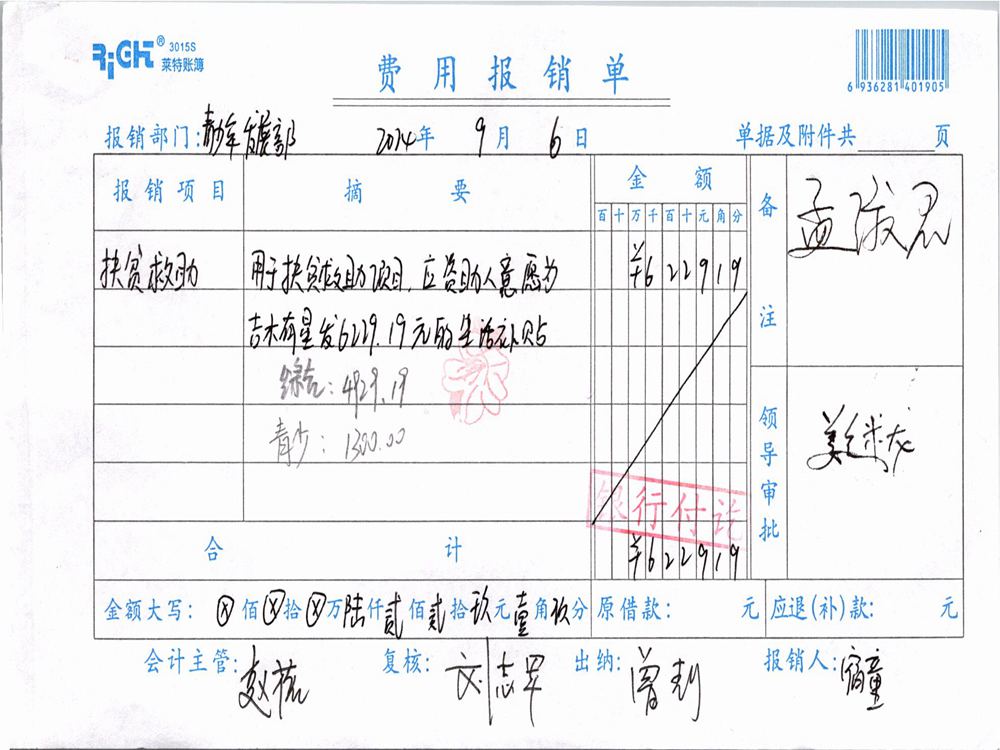 RiGHT® 3015S
莱特账簿
费用报销单
6 936281 401905
报销部门:青少年发展部 2014年 9月 6日 单据及附件共 页
报销项目 摘要 金额 备注
百十万千百十元角分
扶贫救助 用于扶贫救助项目,应资助人意愿为 ¥622919
吉木有星发6229.19元的生活补贴
综合:4929.19
青少:1300.00
银行付讫
领导审批
合计 ¥622919
金额大写:ⓧ佰ⓧ拾ⓧ万陆仟贰佰贰拾玖元壹角玖分 原借款: 元 应退(补)款: 元
会计主管: 复核:刘志军 出纳: 报销人: